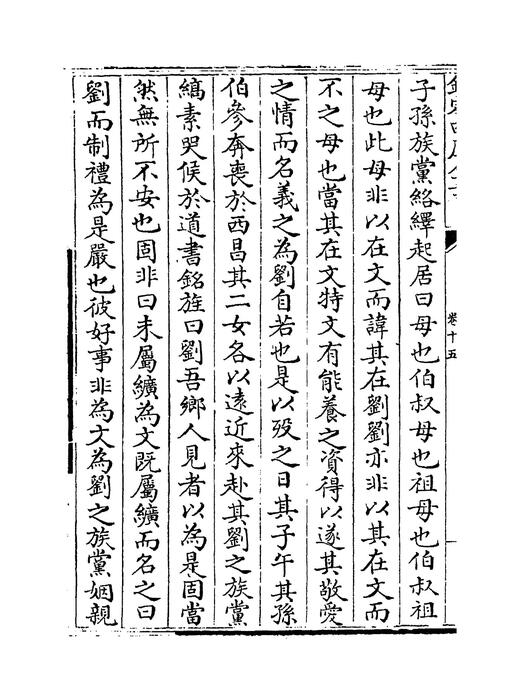 子孫族黨絡繹起居曰母也伯叔母也祖母也伯叔祖
母也此母非以在文而諱其在劉劉亦非以其在文而
不之母也當其在文特文有能養之資得以遂其敬愛
之情而名義之為劉自若也是以歿之日其子午其孫
伯參奔喪於西昌其二女各以遠近來赴其劉之族黨
縞素哭候於道書銘旌曰劉吾鄉人見者以為是固當
然無所不安也固非曰未屬纊為文既屬纊而名之曰
劉而制禮為是嚴也彼好事非為文為劉之族黨姻親
卷十五